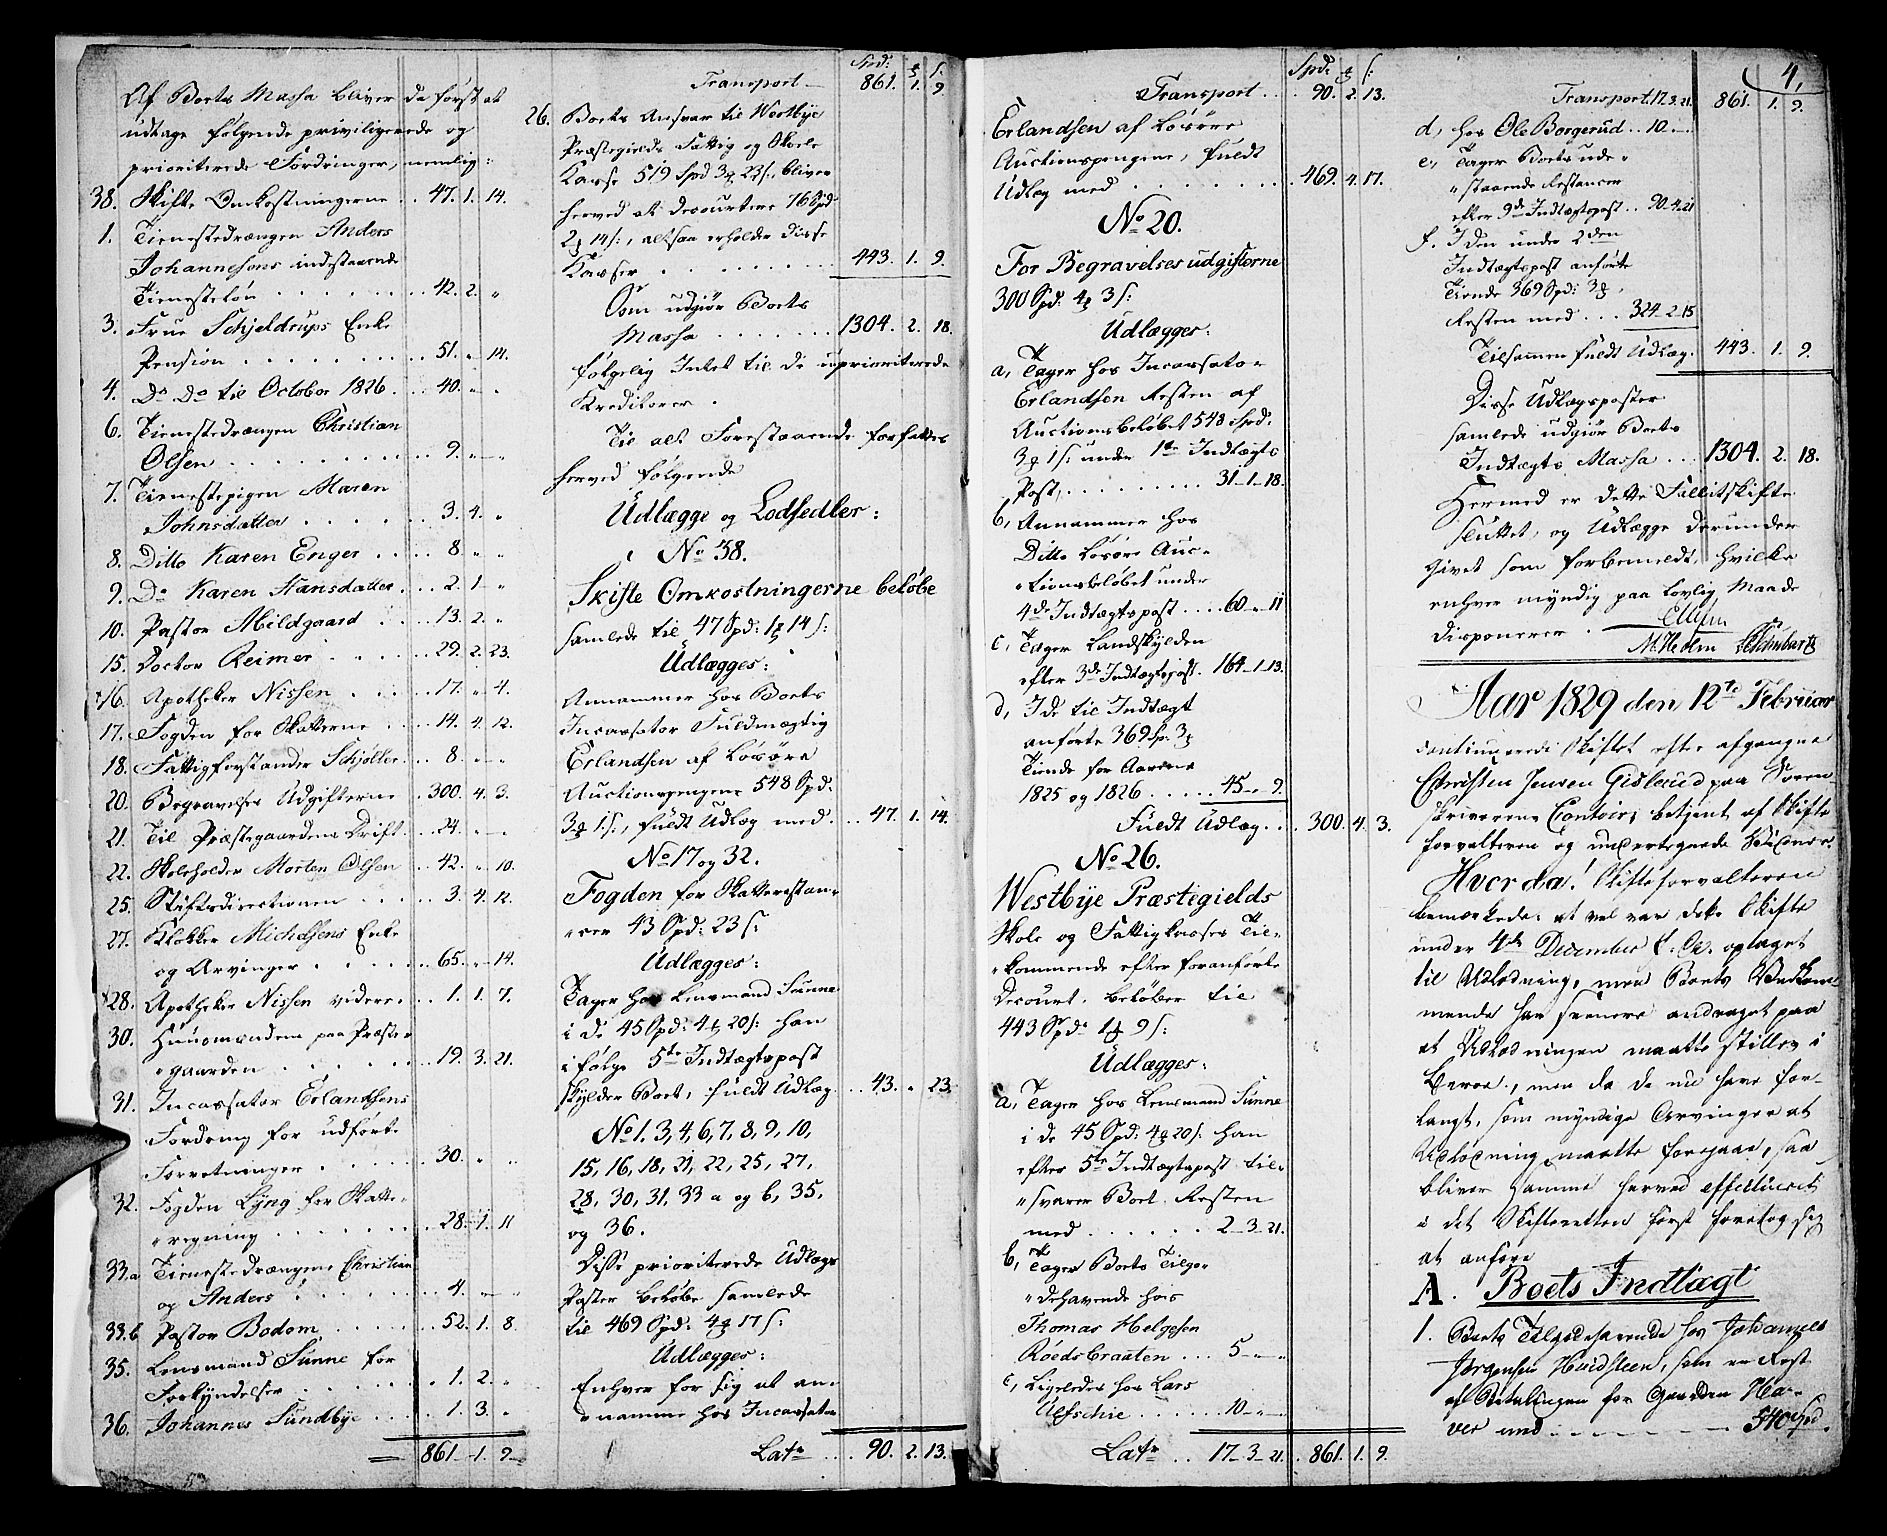 Af Boets Massa bliver da först at
udtage følgende priviligerede og
prioriterede Fordringer, nemlig:
38. Skifte Omkostningerne .. 47. 1. 14.
1. Tienestedrængen Anders
Johannesens indestaaende
Tienesteløn ... 42. 2. "
3. Frue Schjeldrups Enke
Pension ... 51. " 14.
4. Do Do til October 1826 ... 40. " "
6. Tienestedrængen Christian
Olsen ... 9. " "
7. Tienestepigen Maren
Johnsdatter ... 3. 4. "
8. Ditto Karen Enger ... 8 " "
9. Do Karen Hansdatter ... 2. 1 "
10. Pastor Mildgaard ... 13. 2. "
15. Doctor Reimer ... 29. 2. 23.
16. Apotheker Nissen ... 17. " 4.
17. Fogden for Skatterne ... 14. 4. 12.
18. Fattigforstander Schjøller ... 8 " "
20. Begravelses Udgifterne .. 300. 4. 3.
21. Til Præstegaardens Drift ... 24. " "
22. Skoleholder Morten Olsen .. 42. " 10.
25. Stiftsdirectionen ... 3. 4. 12.
27. Klokker Michelsens Enke
og Arvinger ... 65. " 14.
28. Apotheker Nissen videre ... 1. 1. 7.
30. Huusmændene paa Præste-
gaarden ... 19. 3. 21.
31. Incassator Erlandsens
Fordring for udførte
Forretninger ... 30. " "
32. Fogden Lyng for Skatte-
regning ... 28. 1. 11
33.a Tienestedrængene Christian
og Anders ... 4. " "
33.b Pastor Bodom ... 52. 1. 8.
35. Lensmand Sunne for
Forkyndelser ... 1. 2. "
36. Johannes Sundbye ... 1. 3. "
= 861. 1. 9.
Spd: ß s.
Transport — 861. 1. 9.
26. Boets Ansvar til Westbye
Præstegields Fattig og Skole
Kasse 519 Spd 3ß 23 s., bliver
herved at decourtere 76 Spd
2ß 14 s., altsaa erholder disse
Kasser ... 443. 1. 9.
Som udgiör Boets
Massa ... 1304. 2. 18.
følgelig Intet til de uprioriterede
Kreditorer.
Til alt Forestaaende forfattes
herved følgende
Udlægge og Lodsedler:
No 38.
Skifte Omkostningerne beløbe
samlede til 47 Spd: 1ß 14 s:
Udlægges:
Annammer hos Boets
Incassator Fuldmægtig
Erlandsen af Løsøre
Auctionspengene 548 Spd.
3ß 1 s., fuldt Udlæg med ... 47. 1. 14.
No 17 og 32.
Fogden for Skatterestan-
cer 43 Spd: 23 s:
Udlægges:
Tager hos Lensmand Sunne
i de 45 Spd: 4ß 20 s: han
ifølge 5te Indtægtspost
skylder Boet, fuldt Udlæg ... 43. " 23.
No 1. 3, 4, 6, 7, 8, 9, 10,
15, 16, 18, 21, 22, 25, 27,
28, 30, 31, 33 a og b, 35,
og 36.
Disse prioriterede Udlægs
Poster beløbe samlede
til 469 Spd: 4ß 17 s:
Udlægges:
Enhver for sig at an-
namme hos Incassator
Latr ... 90. 2. 13.
Spd: ß s:
Transport .. 90. 2. 13.
Erlandsen af Løsøre
Auctionspengene, fuldt
Udlæg med ... 469. 4. 17.
No 20.
For Begravelsesudgifterne
300 Spd: 4ß 3 s:
Udlægges:
a, Tager hos Incassator
Erlandsen Resten af
Auctionsbeløbet 548 Spd.
3ß 1 s: under 1te Indtægts
Post, ... 31–1–18.
b, Annammer hos
Ditto Løsøre Auc-
tionsbeløbet under
4de Indtægtspost ... 60 – " 11
c, Tager Landskylden
efter 3de Indtægtspost . 164–1–13.
d, I de til Indtægt
anførte 369 Sp: 3ß
Tiende for Aarene
1825 og 1826 ... 45 – " 9.
Fuldt Udlæg ... 300. 4. 3.
No 26.
Westbye Præstegields
Skole og Fattigkasses Til-
kommende efter foranførte
Decourt. beløber til
443 Spd: 1ß 9 s:
Udlægges:
a, Tager hos Lensmand Sunne
i de 45 Spd: 4ß 20 s: han
efter 5te Indtægtspost til-
svarer Boet. Resten
med ... 2–3–21.
b, Tager Boets Tilgo-
dehavende hos
Thomas Helgesen
Røedsbraaten ... 5 – " "
c, Ligeledes hos Lars
... 10 – " "
Latr ... 17–3–21. 861. 1. 9.
4.
Transport. 17.3.21. 861. 1. 9.
d, hos Ole Borgerud .. 10 –
e, Tager Boets ude-
staaende Restancer
efter 9de Indtægtspost .. 90–4–21
f. I den under 2den
Indtægtspost anførte
Tiende 369 Spd: 3ß.
Resten med ... 324–2–15
Tilsammen fuldt Udlæg. 443. 1. 9.
Disse Udlægsposter
samlede udgiör Boets
Indtægts Massa ... 1304. 2. 18.
Hermed er dette Fallitskifte
sluttet, og Udlægge derunder
givet som forbemeldt, hvilke
enhver myndig paa lovlig Maade
disponerer.
Aar 1829 den 12te Februar
continuerede Skiftet efter afgangne
Christen Jensen Gislerud paa Soren-
skriverens Contoir, betjent af Skifte-
forvalteren og undertegnede Vidner.
Hvorda! Skifteforvalteren
bemærkede: at vel var dette Skifte
under 4de December f. A. optaget
til Udlodning, men Boets Vedkom-
mende har senere andraget paa
at Udlodningen maatte stilles i
Beroe, men da de nu have for-
langt, som myndige Arvinger at
Udlodning maatte foregaae, saa
bliver samme herved effectueret
i det Skifteretten først foretog sig
at anføre
A. Boets Indtægt
1. Boets Tilgodehavende hos Johannes
Jørgensen Huidsteen, som er Rest
af Betalingen for Gaarden Ha-
ver med ... 540 Spd.